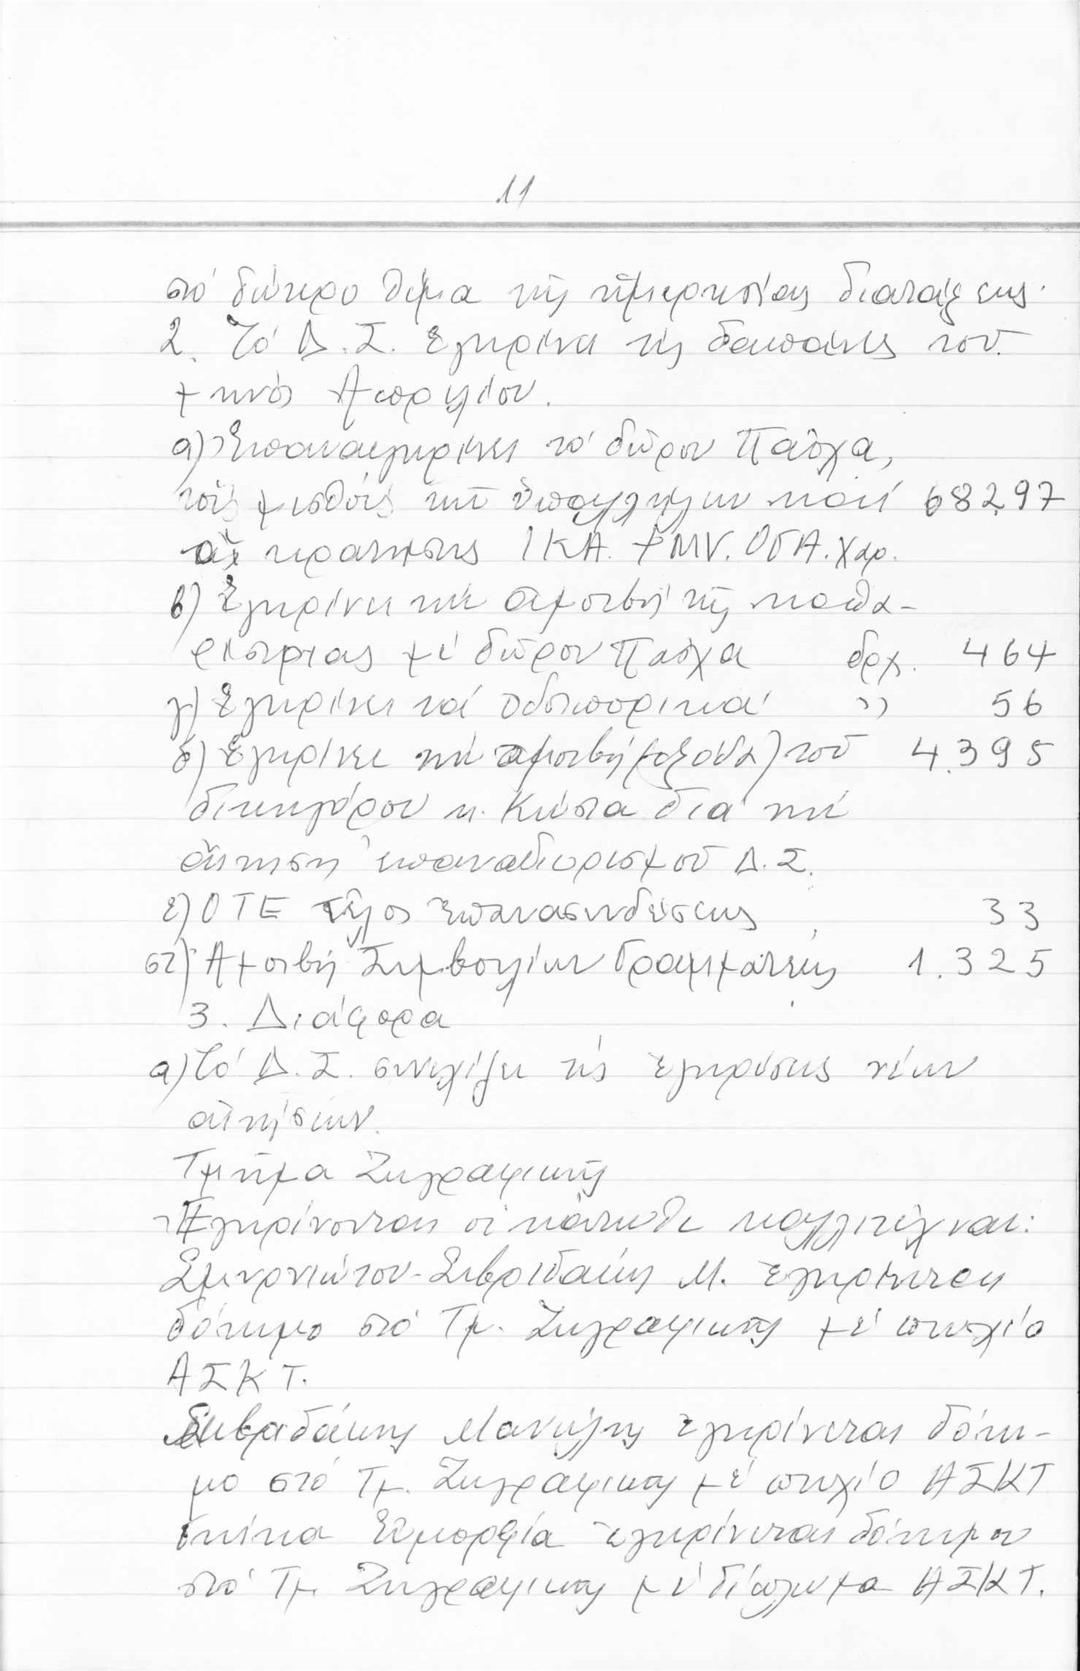 11
στό δεύτερο θέμα τῆς ἡμερησίας διατάξεως.
2. Τό Δ.Σ. ἐγκρίνει τίς δαπάνες τοῦ
μηνός Ἀπριλίου.
α) Ἐπαναεγκρίνει τό δῶρον Πάσχα,
τούς μισθούς τῶν ὑπαλλήλων καί 68297
αἱ κρατήσεις ΙΚΑ. ΟΓΑ. Χαρ.
β) Ἐγκρίνει τήν ἀμοιβή τῆς καθα-
ρίστριας μέ δῶρον Πάσχα δρχ. 464
γ) Ἐγκρίνει τά ὁδοιπορικά " 56
δ) Ἐγκρίνει τήν ἀμοιβή (ἔξοδα) τοῦ 4.395
δικηγόρου κ. Κιούσια διά τήν
αἴτηση ἐπαναδιορισμοῦ Δ.Σ.
ε) ΟΤΕ τέλος ἐπανασυνδέσεως 33
στ) Ἀμοιβή Συμβουλίων Γραμματέως 1.325
3. Διάφορα
α) Τό Δ.Σ. συνεχίζει τίς ἐγκρίσεις νέων
αἰτήσεων.
Τμῆμα Ζωγραφικῆς
Ἐγκρίνονται οἱ κάτωθι καλλιτέχναι:
Σμυρνιώτου-Σεβριδάκη Μ. ἐγκρίνεται
δόκιμο στό Τμ. Ζωγραφικῆς μέ πτυχίο
ΑΣΚΤ.
Μανώλης ἐγκρίνεται δόκι-
μο στό Τμ. Ζωγραφικῆς μέ πτυχίο ΑΣΚΤ
Εὐμορφία ἐγκρίνεται δόκιμον
στό Τμ. Ζωγραφικῆς μέ δίπλωμα ΑΣΚΤ.